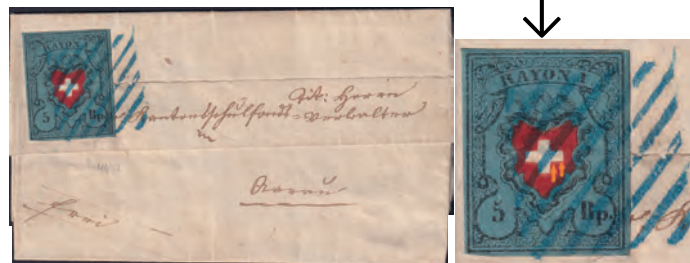 RAYON I
5 Rp.
Tit: Herrn
Kantonsschulfonds=verwalter
in
Aarau
frei
RAYON I
5 Rp.